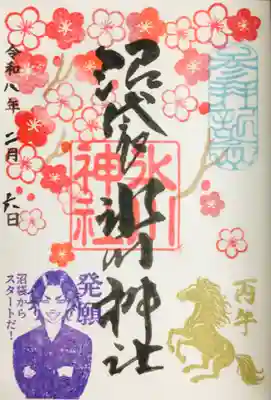 参拝記念
沼袋氷川神社
氷川神社
令和八年 二月 六日
丙午
発願
沼袋から
スタートだ!